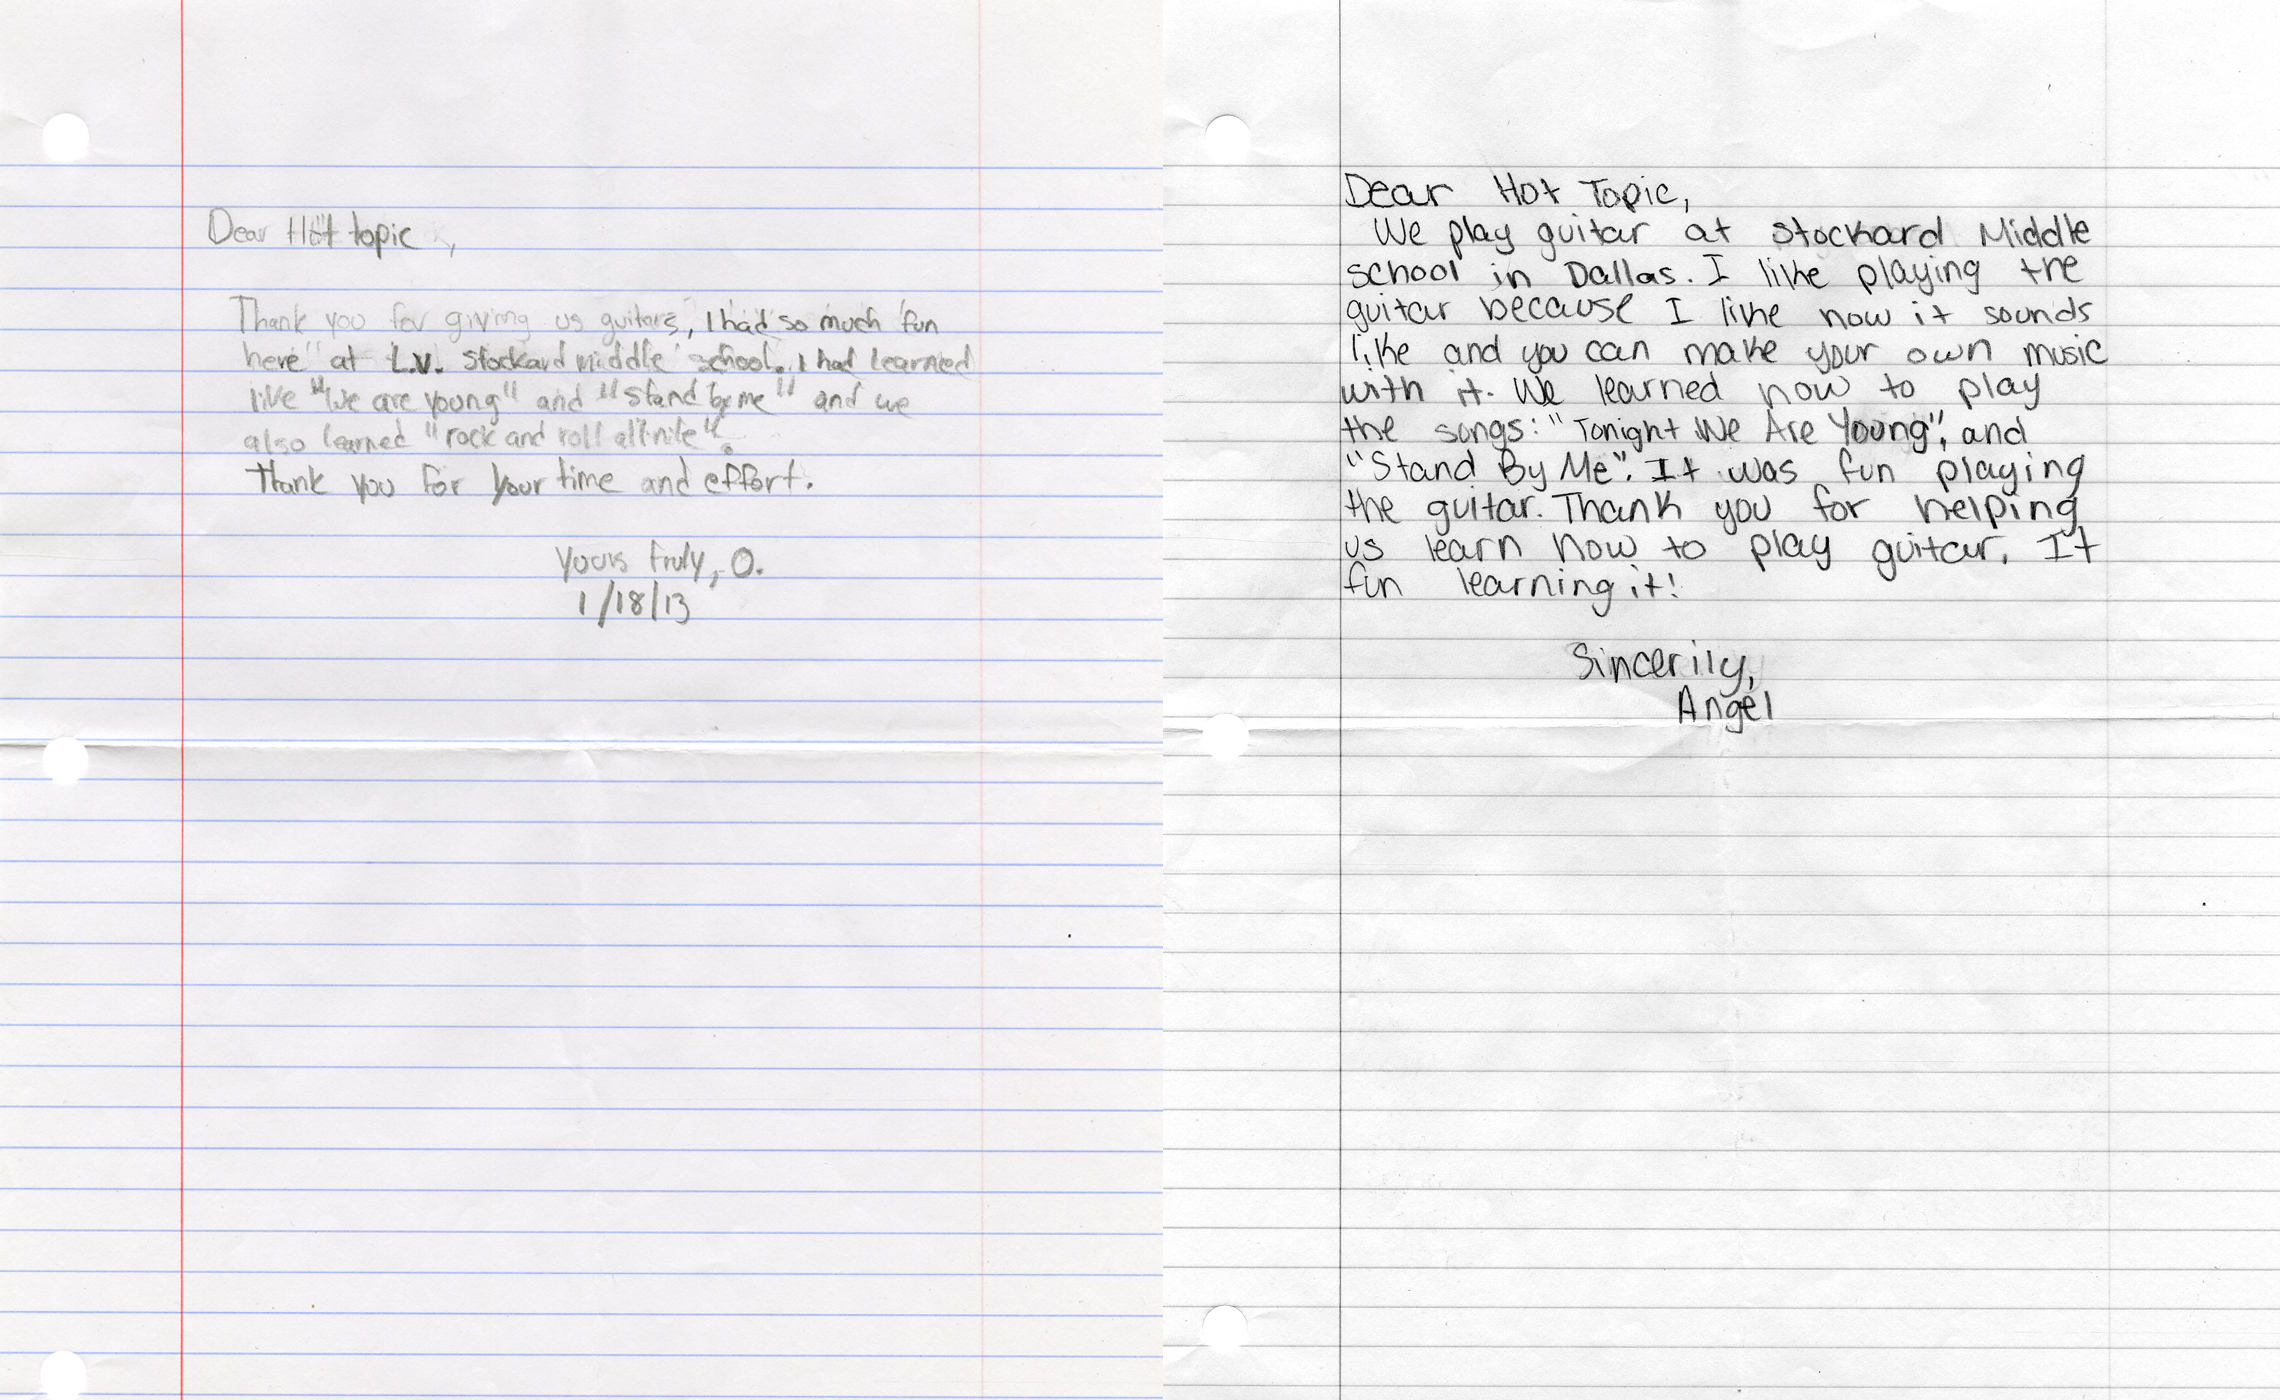 Dear Hot topic,
Thank you for giving us guitars, I had so much fun
here at L.V. Stockard middle school. I had learned
like "We are young" and "Stand by me" and we
also learned "rock and roll all nite".
Thank you for your time and effort.
Yours truly, O.
1/18/13
Dear Hot Topic,
We play guitar at Stockard Middle
school in Dallas. I like playing the
guitar because I like how it sounds
like and you can make your own music
with it. We learned how to play
the songs: "Tonight We Are Young", and
"Stand By Me". It was fun playing
the guitar. Thank you for helping
us learn how to play guitar. It
fun learning it!
Sincerily,
Angel